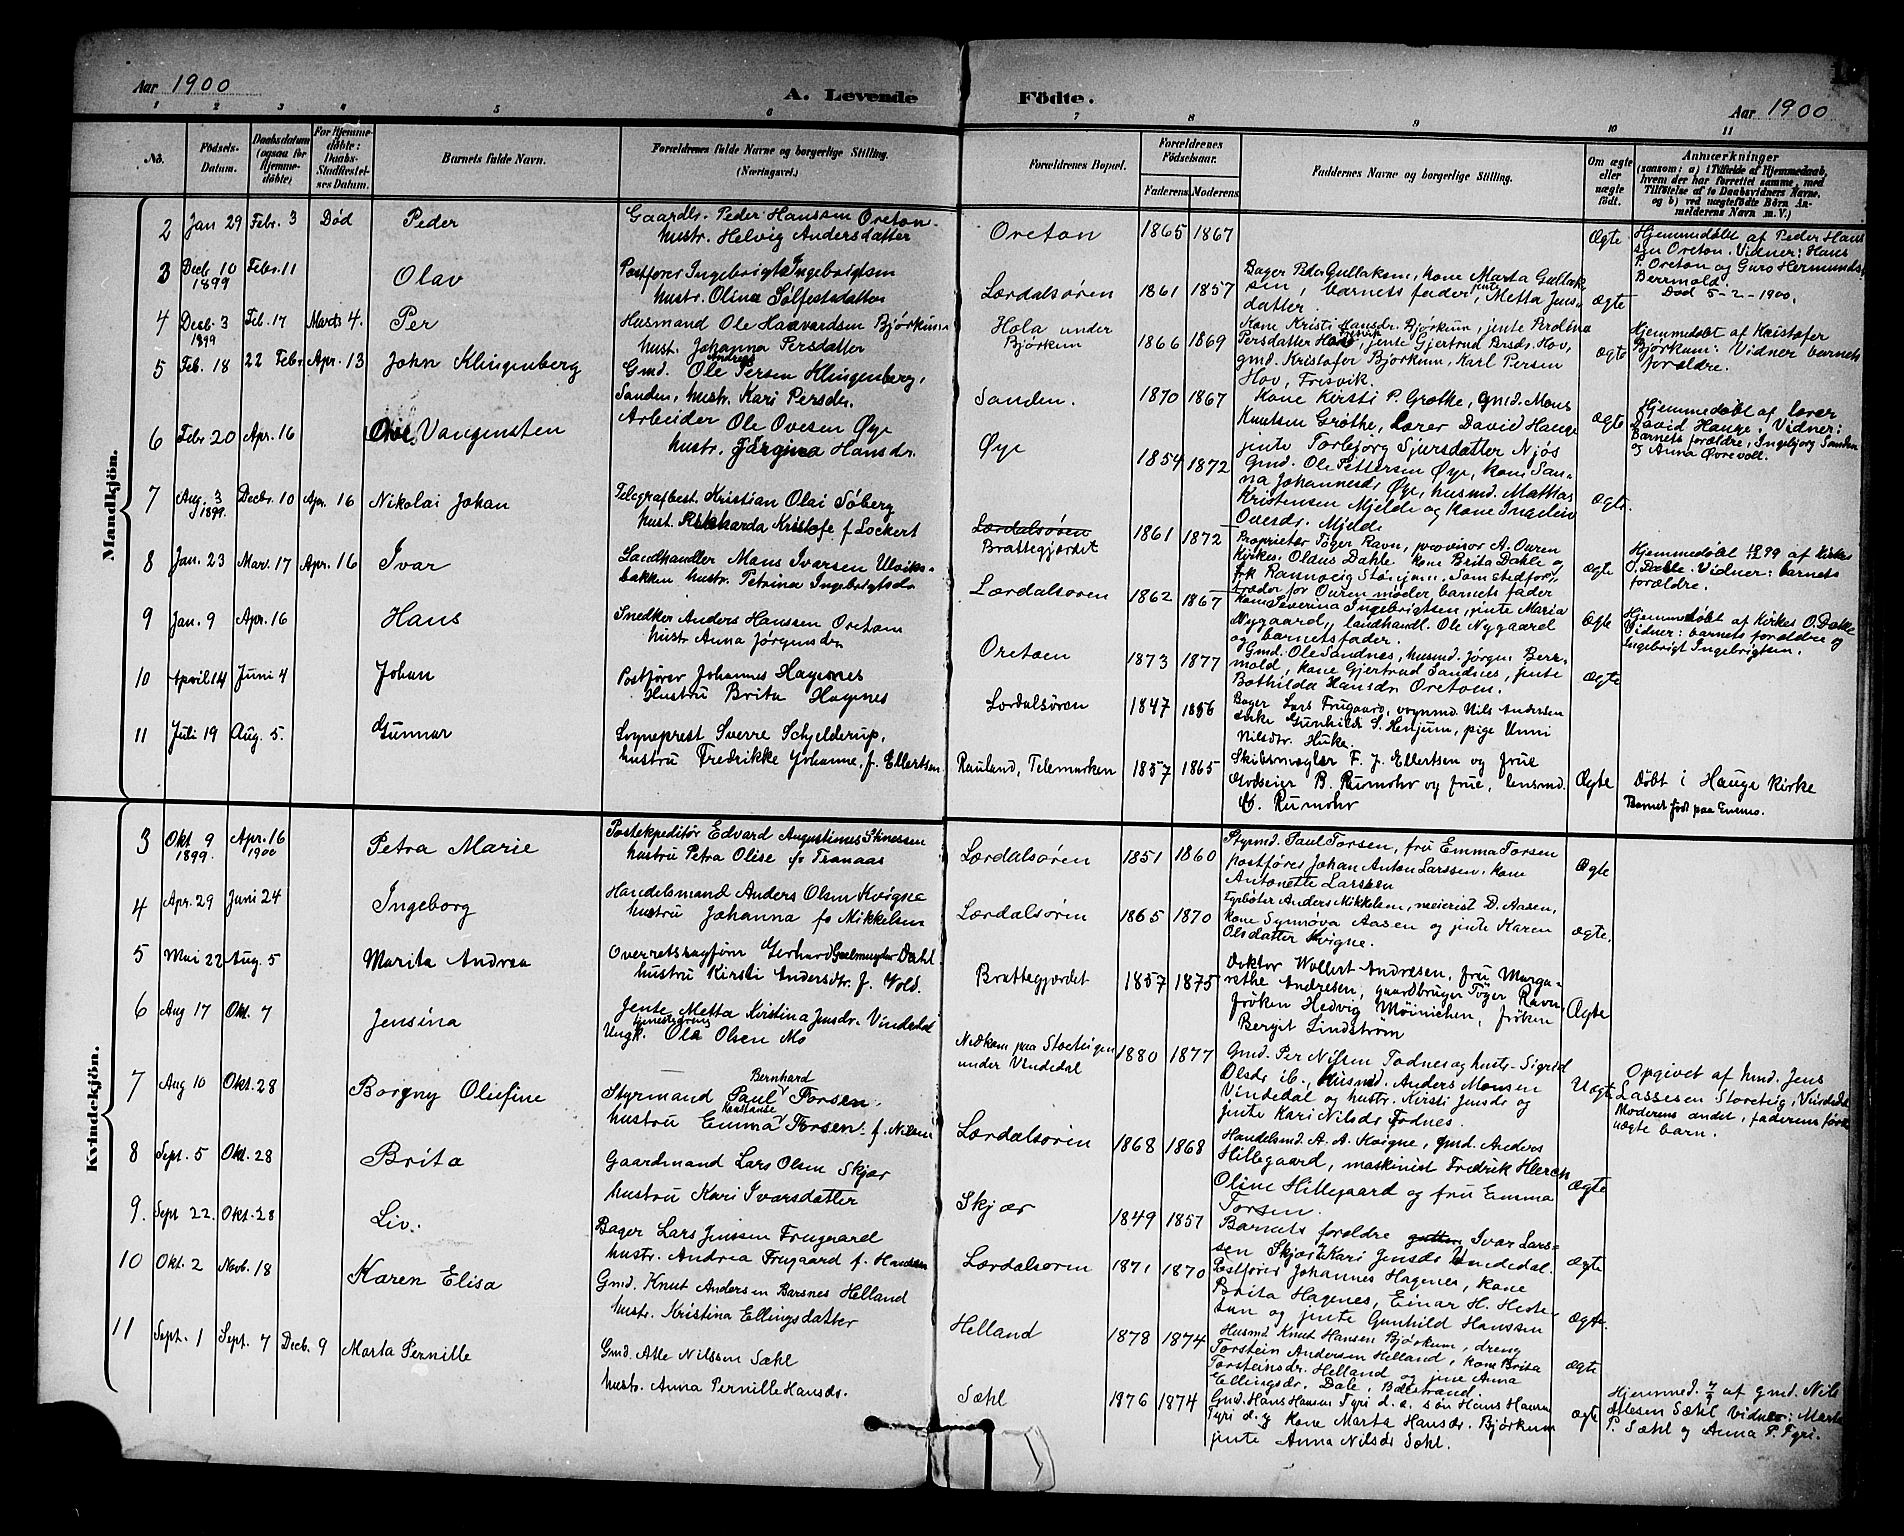 Aar 1900
A. Levende Födte.
Aar 1900
1 2 3 4 5 6 7 8 9 10 11
No.
Födsels-Datum.
Daabsdatum (ogsaa for Hjemme-døbte)
For Hjemme-døbte: Daabs-Stadfæstel-sens Datum.
Barnets fulde Navn.
Forældrenes fulde Navne og borgerlige Stilling.
(Næringsvei.)
Forældrenes Bopæl.
Forældrenes Födselsaar.
Faderens. Moderens.
Faddernes Navne og borgerlige Stilling.
Om ægte eller uægte födt.
Anmærkninger
(saasom: a) i Tilfælde af Hjemmedaab,
hvem der har forrettet samme, med
Tilføielse af to Daabsvidners Navne.
og b) ved uægtefödte Börn An-
melderens Navn m. V.)
Mandkjön.
2 Jan 29 Febr. 3 Død Peder
Gaardbr. Peder Hanssen Oreton
hustr. Helvig Andersdatter
Oreton 1865 1867
Ægte
Hjemmedøbt af Peder Hans
sen Oreton. Vidner: Hans
P. Oreton og Guro Hermunds
Berrmold.
Død 5-2-1900.
3 Decb. 10 1899 Febr. 11 Olav
Postfører Ingebrigt Ingebrigtsen
hustr. Olina Sølfestsdatter
Lærdalsøren 1861 1857
Bager Peder Gullaksen, kone Marta Gullak-
sen, barnets fader, jente Metta Jens-
datter.
Ægte
4 Decb. 3 1899 Feb. 17 Marts 4. Per
Husmand Ole Haavardsen Bjørkum
hust. Johanna Persdatter
Hola under
Bjørkum 1866 1869
Kone Kristi Hansdr. Bjørkum, jente Perdina
Persdatter, jente Gjertrud Hov,
gmd. Kristofer Bjørkum, Karl Persen
Hov, Frisvik.
ægte
Hjemmedøbt af Kristofer
Bjørkum: Vidner barnets
forældre.
5 Feb. 18 22 Febr. Apr. 13 John Klingenberg
Gmd. Ole Andreas Persen Klingenberg,
Sanden, hustr. Kari Persdr.
Sanden. 1870 1867
Kone Kirsti P. Grøtte, gmd. Mons
Knutsen Grøthe, lærer David Hauge
jente Torbjørg Sjursdatter Njøs
ægte
Hjemmedøbt af lærer
David Hauge, Vidner:
Barnets forældre, Ingebjorg Sanden
og Anna Øvrevoll.
6 Febr 20 Apr. 16 Ove Vangensten
Arbeider Ole Ovesen Øye
hustr. Jørgina Hansdr.
Øye 1854 1872
Gmd. Ole Pettersen Øye, kone San-
na Johannesdr Øye, husmd. Mathas
Kristensen Mjelde og kone Ingeleiv
Ovesdr. Mjelde
Ægte
7 Aug. 3 1899. Decbr. 10 Apr. 16 Nikolai Johan
Telegrafbest. Kristian Olai Søberg
hust. Rikharda Kristofe f Lockert
Lærdalsøren
Brattegjærdet 1861 1872
Proprietær Töger Ravn, provisor A. Ouren
Kirkes. Olaus Dahle kone Brita Dahle og
frk Rannveig Stønjum. Som stedfor-
træder for Ouren møder barnets fader
ægte
Hjemmedøbt 99 af Kirkes
O. Dahle. Vidner: barnets
forældre.
8 Jan. 23 Mar. 17 Apr. 16 Ivar
Landhandler Mons Ivarsen Ulviks-
bakken hustr. Petrina Ingebrigtsdr
Lærdalsøren 1862 1867
Kone Severina Ingebrigtsen, jente Maria
Nygaard, landhandl. Ole Nygaard
og barnets fader.
Ægte
Hjemmedøbt af Kirkes O. Dahle
Vidner: barnets forældre og
Ingebrigt Ingebrigtsen.
9 Jan. 9 Apr. 16 Hans
Snedker Anders Hanssen Oretoen
hustr. Anna Jørgensdr
Oretoen 1873 1877
Gmd. Ole Sandnes, husmd. Jørgen Berr-
mold, kone Gjertrud Sandnes, jente
Bothilda Hansdr Oretoen.
ægte
10 April 14 Juni 4 Johan
Postfører Johannes Hagenes
Hustru Brita Hagenes
Lærdalsøren 1847 1856
Bager Lars Frugaard, vognmd. Nils Andersen
Gunhild S. Henjum, pige Unni
Nilsdtr. Huke.
11 Juli 19 Aug. 5. Gunnar
Sogneprest Sverre Schjelderup,
hustru Fredrikke Johanne, f. Ellertsen
Rauland, Telemarken 1857 1865
Skibsmægler F. J. Ellertsen og frue
Godseier B. Rumohr og frue, lensmd.
C. Rumohr
Ægte
døbt i Hauge Kirke
Barnet født paa
Kvindekjön.
3 Okt 9 1899. Apr. 16 1900 Petra Marie
Postekspeditör Edvard Augustinus Stinessen
hustru Petra Olise f. Tranaas
Lærdalsøren 1851 1860
Styrmd. Paul Torsen, fru Emma Torsen
postfører Johan Anton Larssen, kone
Antonette Larssen
Ægte
4 Apr. 29 Juni 24 Ingeborg
Handelsmand Anders Olsen Kvigne
hustru Johanna f. Mikkelsen
Lærdalsøren 1865 1870
Fyrbøter Anders Mikkelsen, meierist D. Aasen,
kone Synnøva Aasen og jente Karen
Olsdatter Kvigne.
ægte.
5 Mai 22 Aug. 5 Marita Andrea
Overretssagfører Gerhard Geelmuyden Dahl
hustru Kirsti Andersdtr. f. Vold.
Brattegjærdet 1857 1875
Doktor Wollert Andresen, fru Marga-
rethe Andresen, gaardbruger Töger Ravn,
frøken Hedvig Möinichen, frøken
Bergit Lindstrøm
Ægte
6 Aug 17 Okt. 7 Jensina
Jente Metta Kirstina Jensdr. Vindedal
Ungk. tjenestgreng Ola Olsen Mo
Nedkom paa Storteigen
under Vindedal 1880 1877
Gmd. Per Nilsen Fodnes og hustr. Sigrid
Olsdr ib., husmd. Anders Monsen
Vindedal og hustr. Kirsti Jensdr og
jente Kari Nilsdr Fodnes.
Uægte
Opgivet af hmd. Jens
Lassesen Storeteig, Vindedal
Moderens andet, faderens første
uægte barn.
7 Aug 10 Okt. 28 Borgny Olufine
Styrmand Paul Bernhard Torsen.
hustru Emma Konstanse Torsen f. Nilsen
Lærdalsøren 1868 1868
Handelsmd. A. A. Kvigne, gmd. Anders
Hillegaard, maskinist Fredrik Klerck
Oline Hillegaard og fru Emma
Torsen.
ægte
8 Sept. 5 Okt. 28 Brita
Gaardmand Lars Olsen Skjær
hustru Kari Ivarsdatter
Skjær 1849 1857
Barnets forældre gutten Ivar Lars-
sen Skjær, Kari Jensdr Vindedal.
ægte
9. Sept 22. Okt. 28 Liv.
Bager Lars Jenssen Frugaard
hustr. Andrea Frugaard f. Hanssen
Lærdalsøren 1871 1870
Postfører Johannes Hagenes, kone
Brita Hagenes, Einar H. Heste-
tun og jente Gunhild Hanssen
ægte.
10 Okt. 2 Novb. 18 Karen Elisa
Gmd. Knut Andersen Barsnes Helland
hustr. Kristina Ellingsdatter
Helland 1878 1874
Husmd Knut Hansen Bjørkum, dreng
Torstein Andersen Helland, kone Brita
Torsteinsdr. Helland og jente Anna
Ellingsdr. Dale, Balestrand.
ægte
11 Sept. 1 Sept. 7 Decb. 9 Marta Pernille
Gmd. Atle Nilssen Sæhl
hustr. Anna Pernille Hansdr.
Sæhl 1876 1874
Gmd. Hans Hansen Tyri d. æ. søn Hans Hansen
Tyri d. y kone Marta Hansdr. Bjørkum
jente Anna Nilsdr Sæhl.
ægte
Hjemmed. 7/9 af gmd. Nils
Atlesen Sæhl Vidner: Marta
P. Sæhl og Anna P. Tyri.